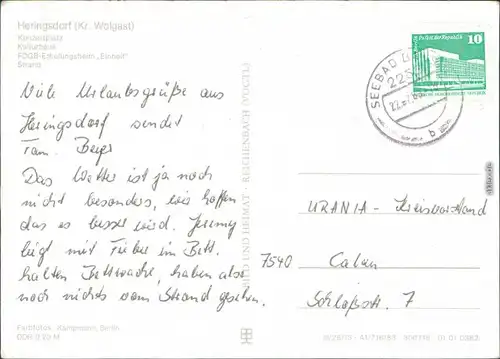 Heringsdorf (Kr. Wolgast)
Konzertplatz
Kulturhaus
FDGB-Erholungsheim „Einheit"
Strand
Viele Urlaubsgrüße aus
Heringsdorf sendet
Fam. Berger
Das Wetter ist ja noch
nicht besonders, wir hoffen
das es besser wird. Jeremy
liegt mit Fieber im Bett.
halten Bettwache, haben also
noch nichts vom Strand gesehen.
Farbfotos: Kampmann, Berlin
BILD UND HEIMAT · REICHENBACH (VOGTL)
Palast der Republik
10
SEEBAD
22.
b
URANIA - Kreisvorstand
7540 Calau
Schloßstr. 7